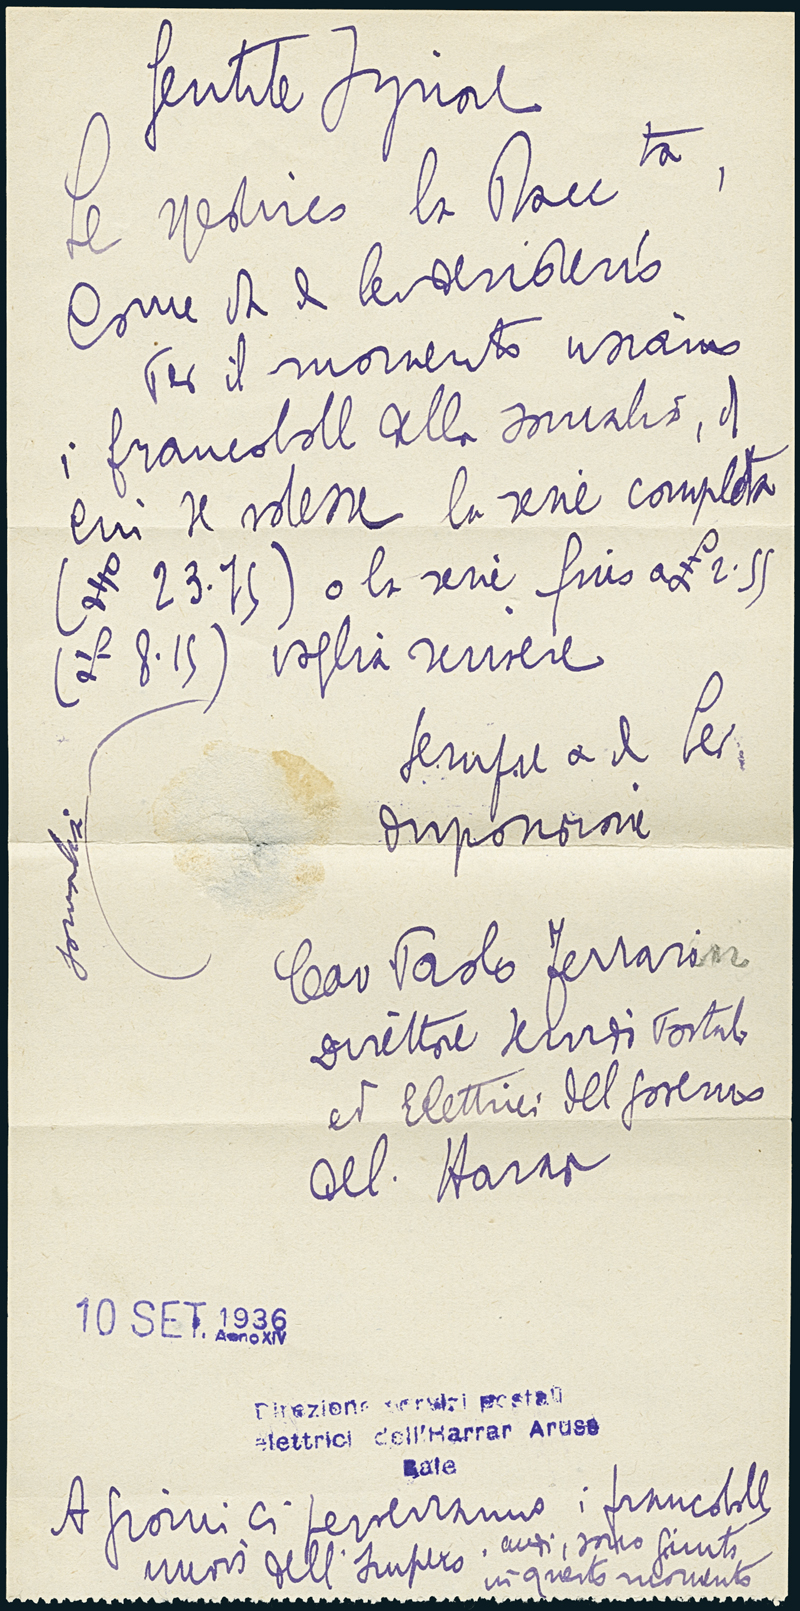 Gentile Signore
Le spedirò la Racc ta,
Come da Lei desiderio
Per il momento usiamo
i francobolli della somalia, di
cui se volesse la serie completa
( 23.75) o la serie fino a 2.55
( 8.15) voglia scrivere
Sempre a di Lei
disposizione
somalia
Cav Paolo Ferrari
Direttore servizi Postali
ed Elettrici del governo
dell. Harrar
10 SET. 1936
Anno XIV
Direzione servizi postali
elettrici dell'Harrar Arusi
Bale
A giorni ci perverranno i francobolli
nuovi dell'Impero, anzi, sono giunti
in questo momento